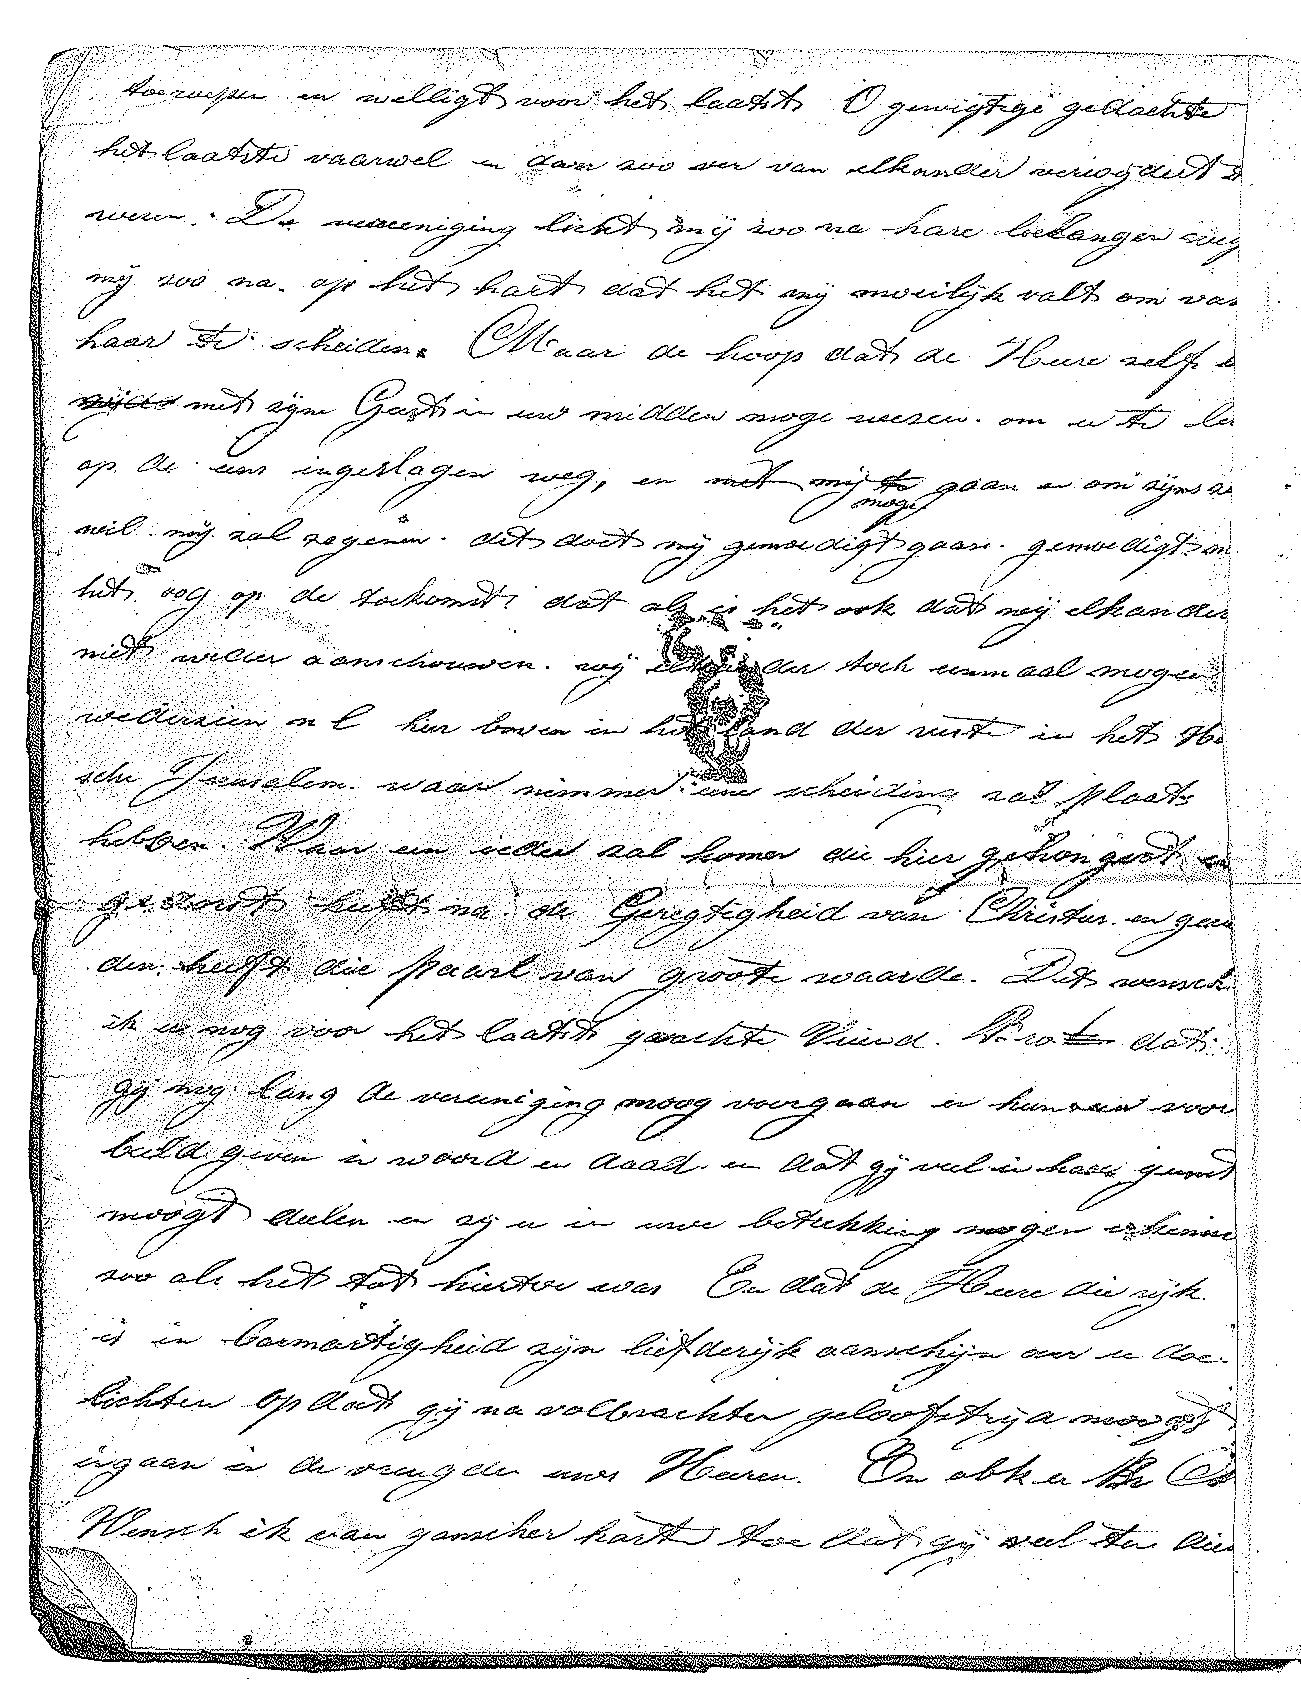 toeroepen en welligt voor het laatst O gewigtige gedachte
het laatste vaarwel en dan soo ver van elkander verwydert te
wesen. De vereeniging licht mij soo na hare belangen weg
mij soo na op het hart dat het mij moeilijk valt om van
haar te scheiden. Maar de hoop dat de Heere self
met zijn Geest in uw midden moge wesen. om u te lei
op de eens ingeslagen weg, en met mij te moge gaan en om sijns
wil mij sal segenen. dit doet mij gemoedigt gaan. gemoedigt
het oog op de toekomst dat als is het ook dat wij elkander
niet weder aanschouwen. wij elkander toch eenmaal mogen
wedersien n l hier boven in het land der ruste in het He
sche Jerusalem. waar nimmer eene scheiding sal plaats
hebben. Waar een ieder sal komen die hier gehongert en
gedorst heeft na de Geregtigheid van Christus. en gevon
den heeft die paarl van groote waarde. Dit wensch
ik u nog voor het laatst geachte Vriend. dat
gij nog lang de vereeniging moog voorgaan en hun een voor
beeld geven in woord en daad. en dat gij veel in haar gunst
moogt deelen en zij u in uwe betrekking mogen erkenne
soo als het tot hiertoe was En dat de Heere die rijk
is in barmartigheid zijn liefderijk aanschijn over u doe
lichten opdat gij na volbrachten geloofstryd moogt
ingaan in de vreugde uws Heeren. En ook u Br
Wensch ik van ganscher harte toe dat gij veel ten dien